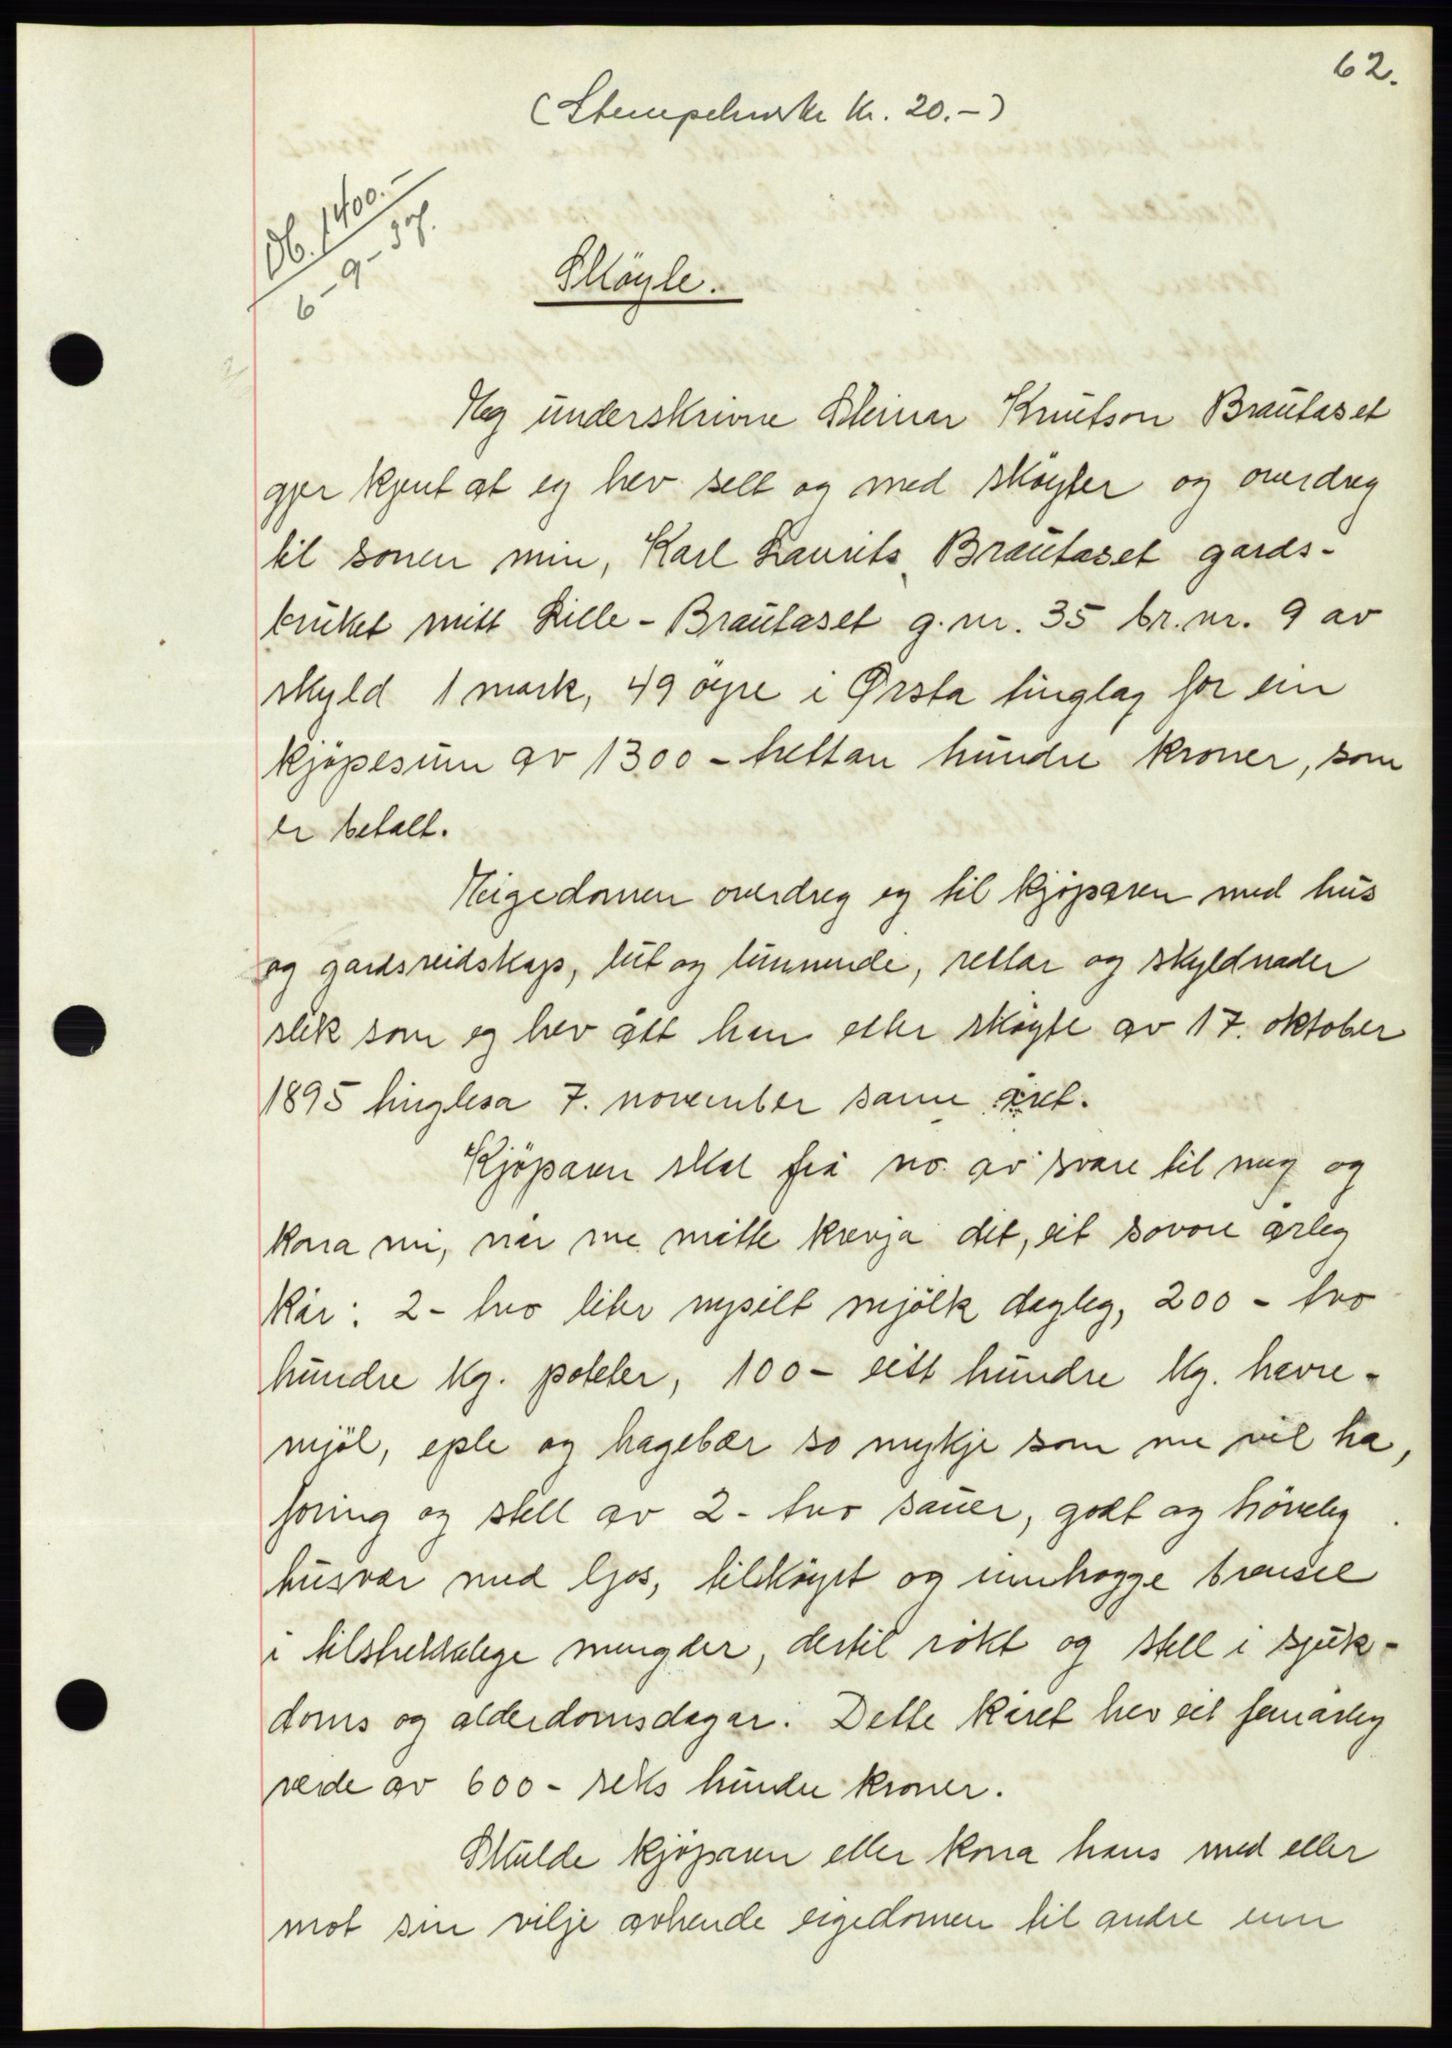 62.
(Stempelmerke kr. 20.-)
Db. 1400.-
6-9-37.
Skøyte.
Eg underskrivne Steinar Knutson Brautaset
gjer kjent at eg hev selt og med skøyter og overdreg
til sonen min, Karl Laurits Brautaset gards-
bruket mitt Lille-Brautaset g.nr. 35 br.nr. 9 av
skyld 1 mark, 49 øyre i Ørsta tinglag for ein
kjøpesum av 1300 - trettan hundre kroner, som
er betalt.
Eigedomen overdreg eg til kjøparen med hus
og gardsreidskap, lut og lunnende, rettar og skyldnader
slik som eg hev ått han etter skøyte av 17. oktober
1895 tinglesa 7. november same året.
Kjøparen skal frå no av svare til meg og
kona mi, når me måtte krevja det, eit sovore årleg
kår: 2 - tvo liter nysilt mjølk dagleg, 200 - tvo
hundre kg. poteter, 100 - eitt hundre kg. havre-
mjøl, eple og hagebær so mykje som me vil ha,
foring og stell av 2 - tvo sauer, godt og høveleg
husvær med ljos, tilkøyrt og innhogge brensel
i tilstrekkelege mengder, dertil røkt og stell i sjuk-
doms og alderdomsdagar. Dette kåret hev eit femårleg
verde av 600 - seks hundre kroner.
Skulde kjøparen eller kona hans med eller
mot sin vilje avhende eigedomen til andre enn